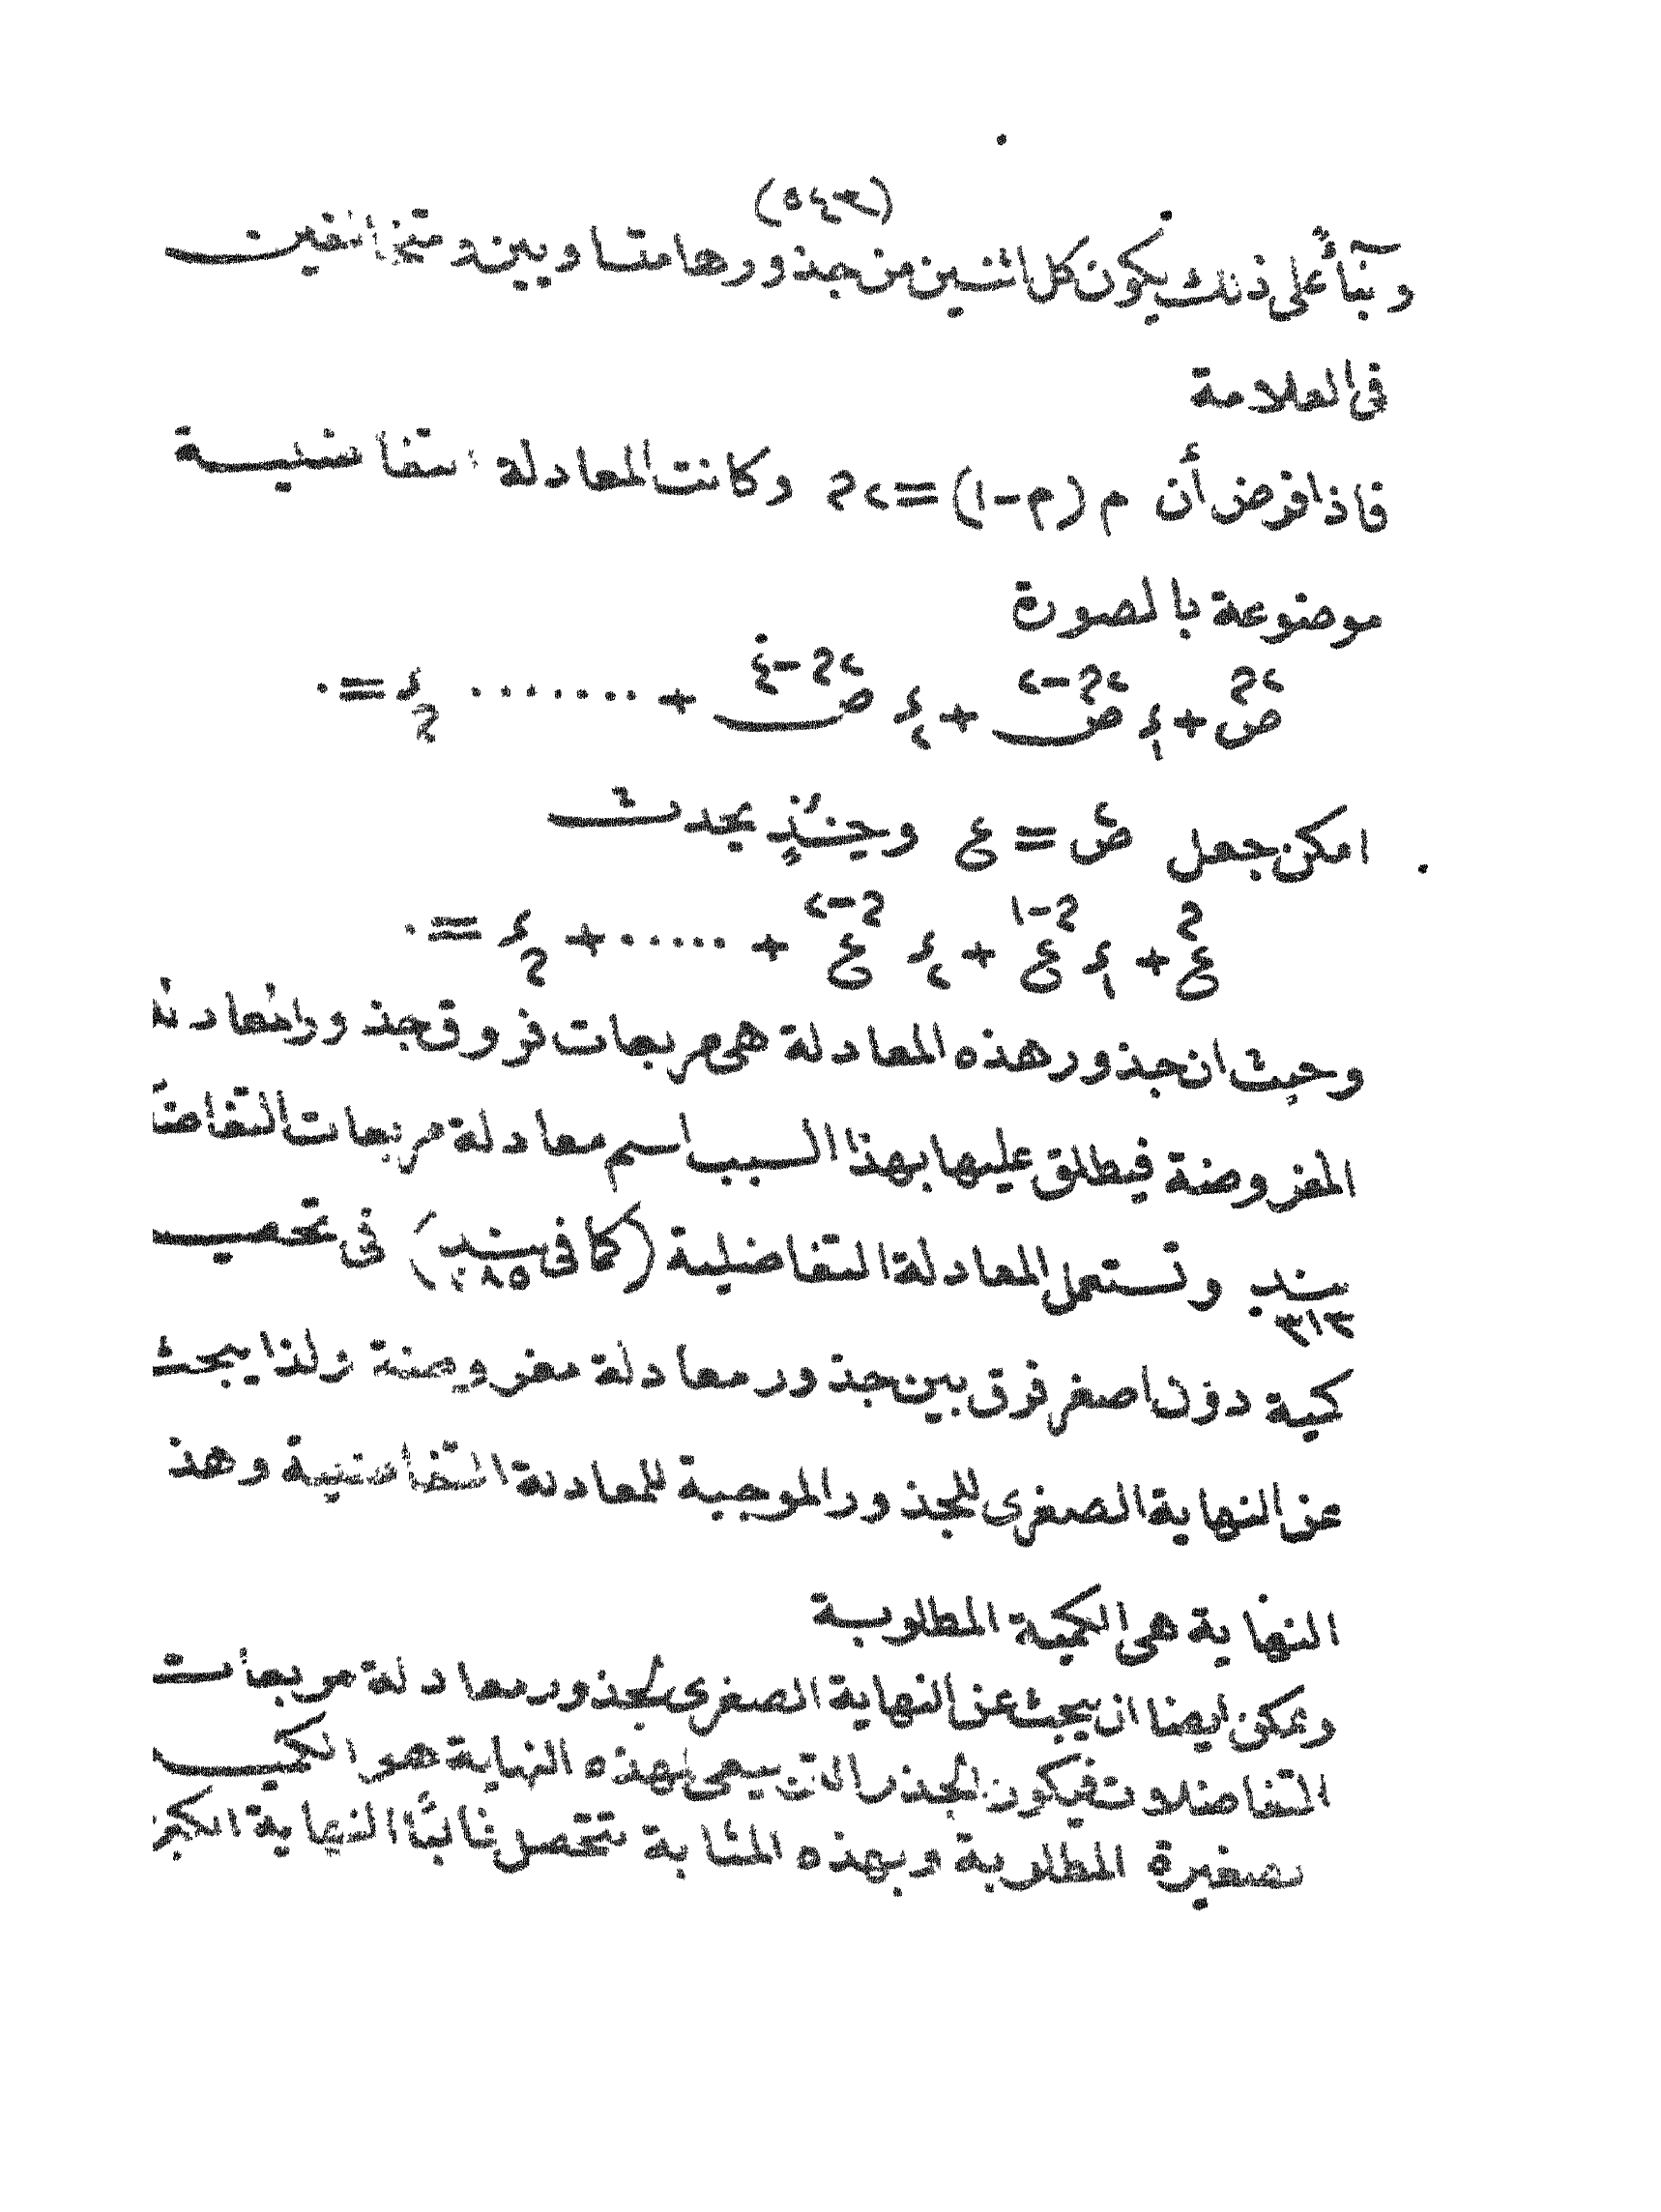 (٥٤٣)
وبنآءً على ذلك يكون كل اثنين من جذورها متساويين ومتخالفين
فى العلامة
فاذا فرض أن م (م-١)=٢ﮮ وكانت المعادلة التفاضلية
موضوعة بالصورة
امكن جعل ض٢ = ع وحينئذٍ يحدث
وحيث ان جذور هذه المعادلة هى مربعات فروق جذور المعادلة
المفروضة فيطلق عليها بهذا السبب اسم معادلة مربعات
بند ٣١٣ وتستعمل المعادلة التفاضلية (كما فى بند) فى
كمية دون اصغر فرق بين جذور معادلة مفروضة ولذا يبحث
عن النهاية الصغرى للجذور الموجبة للمعادلة التفاضلية وهذ
النهاية هى الكمية المطلوبة
ويمكن ايضا ان يبحث عن النهاية الصغرى لجذور معادلة مربعات
التفاضلات فيكون الجذر لهذه النهاية هو
المطلوبة وبهذه المثابة تتحصل غالبًا النهاية